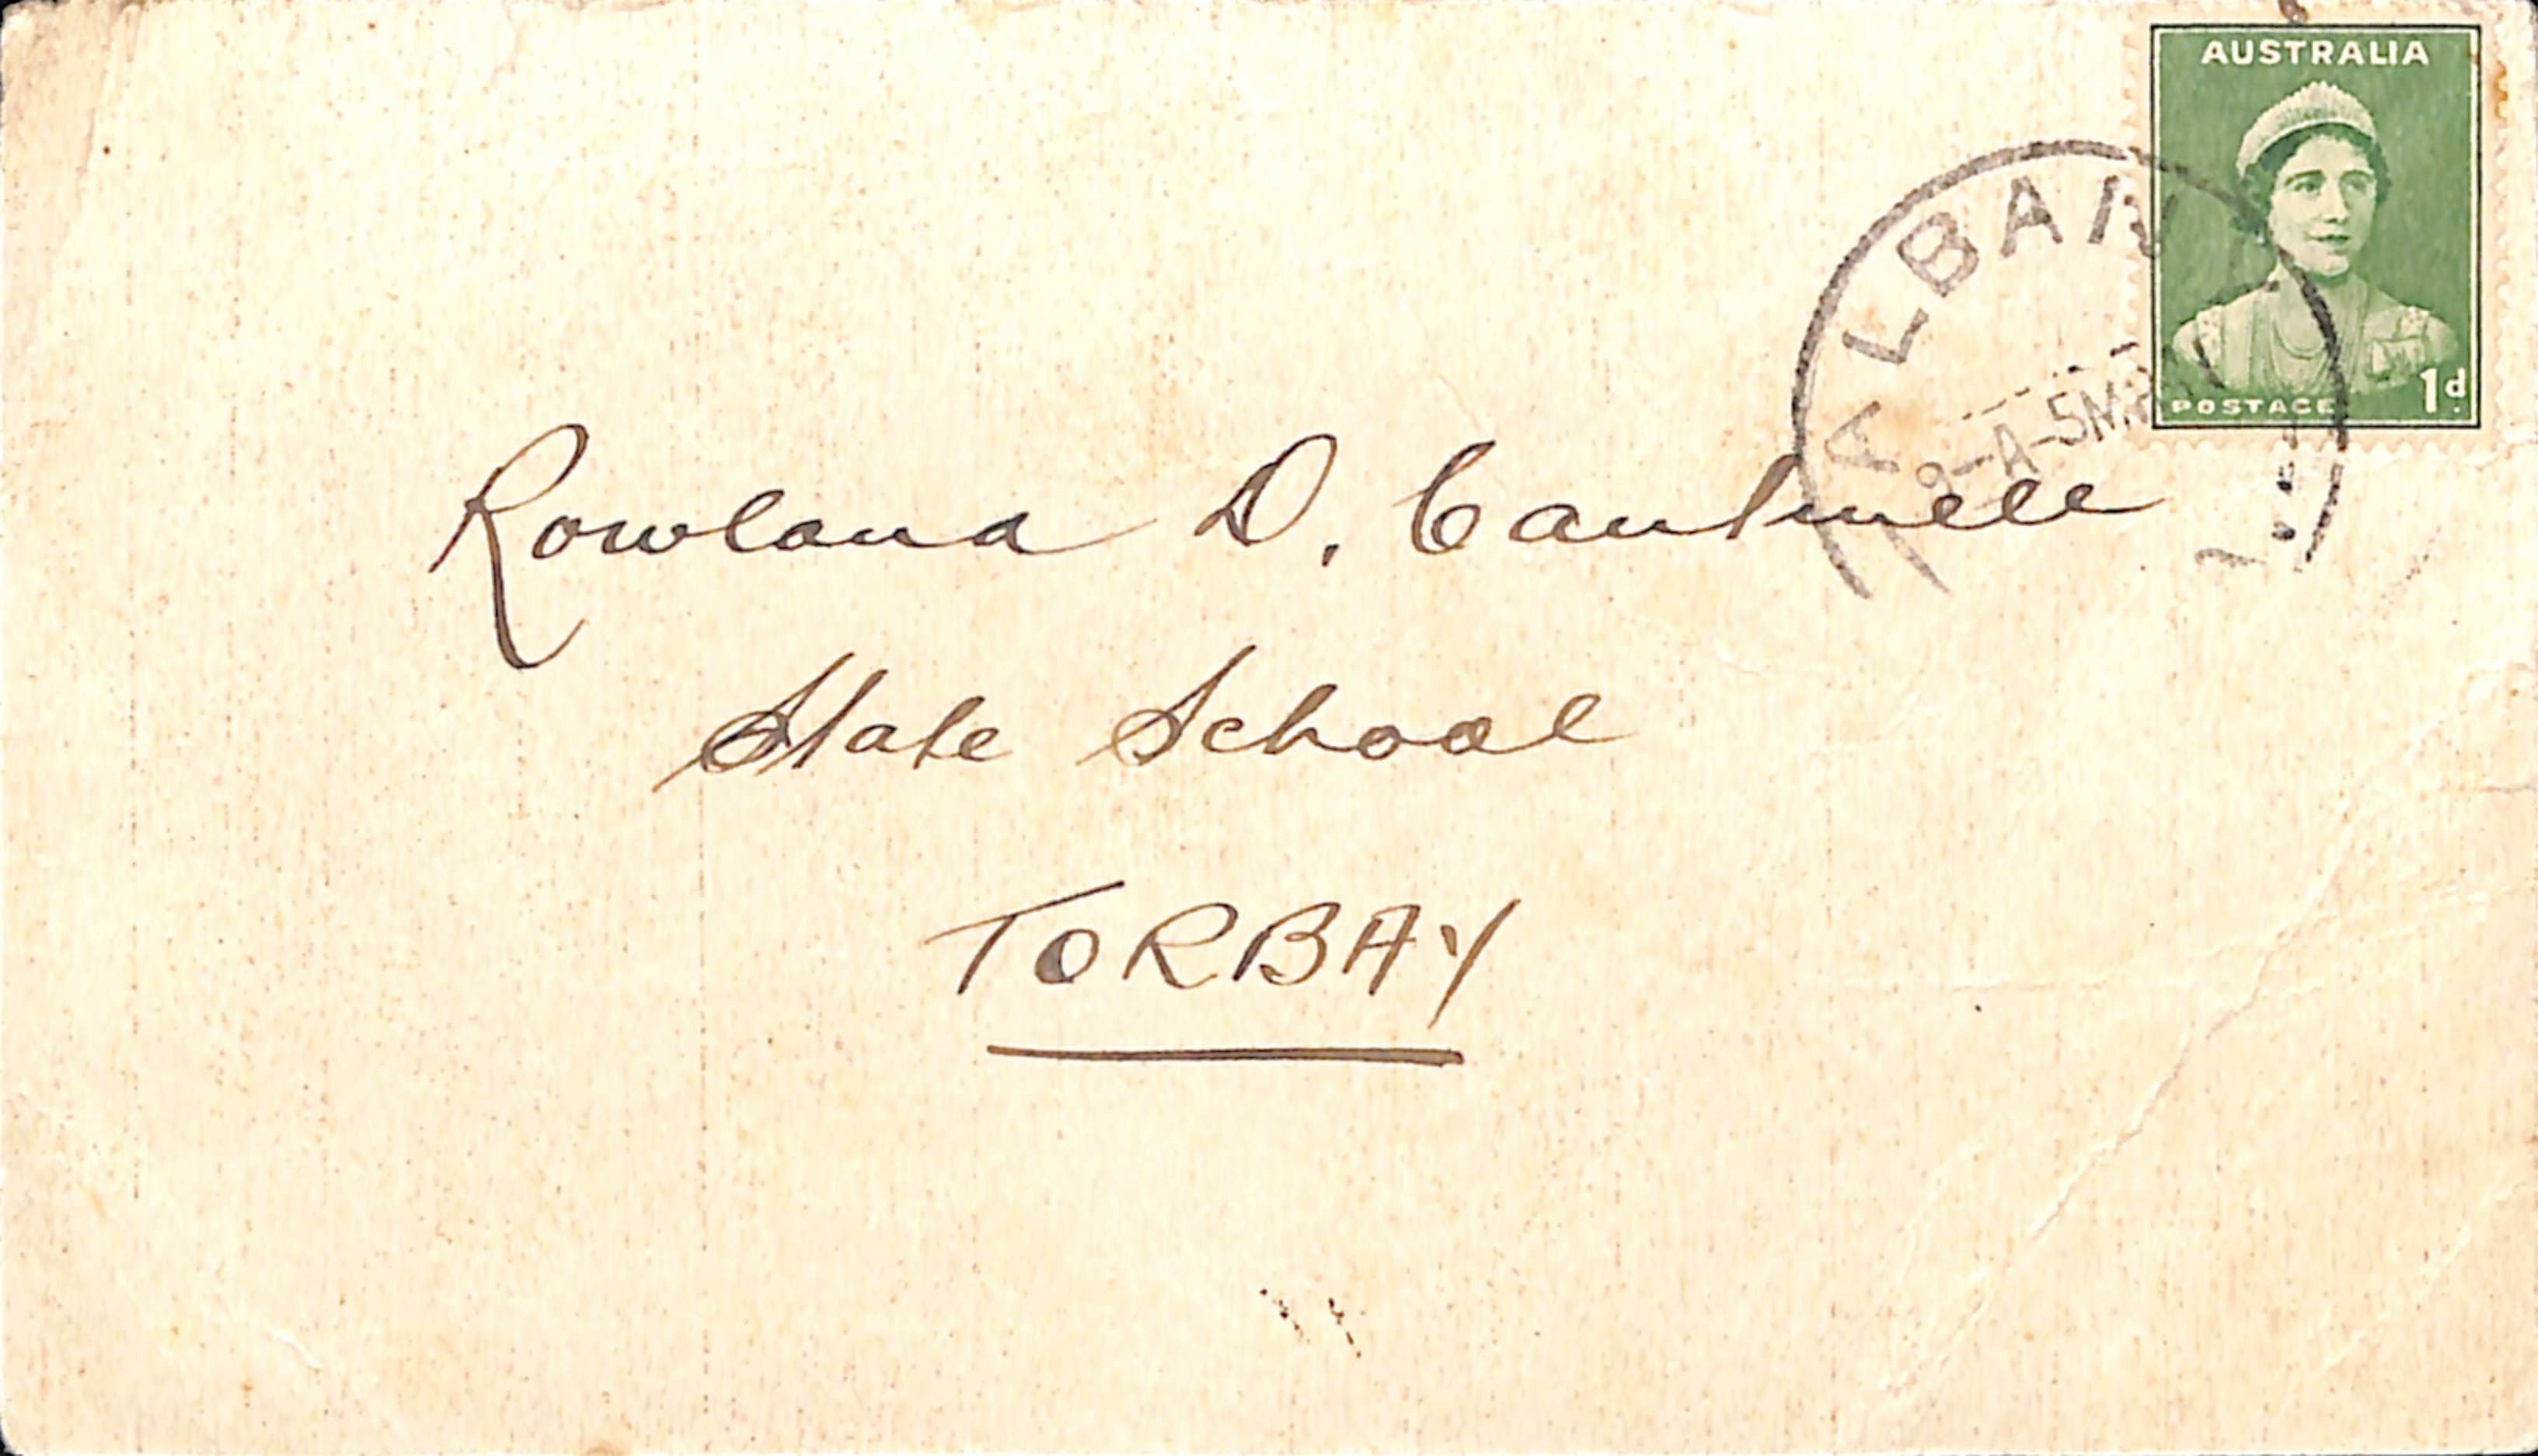 AUSTRALIA
POSTAGE 1d.
ALBAN
9-A-5M
Rowland D. Cantwell
State School
TORBAY